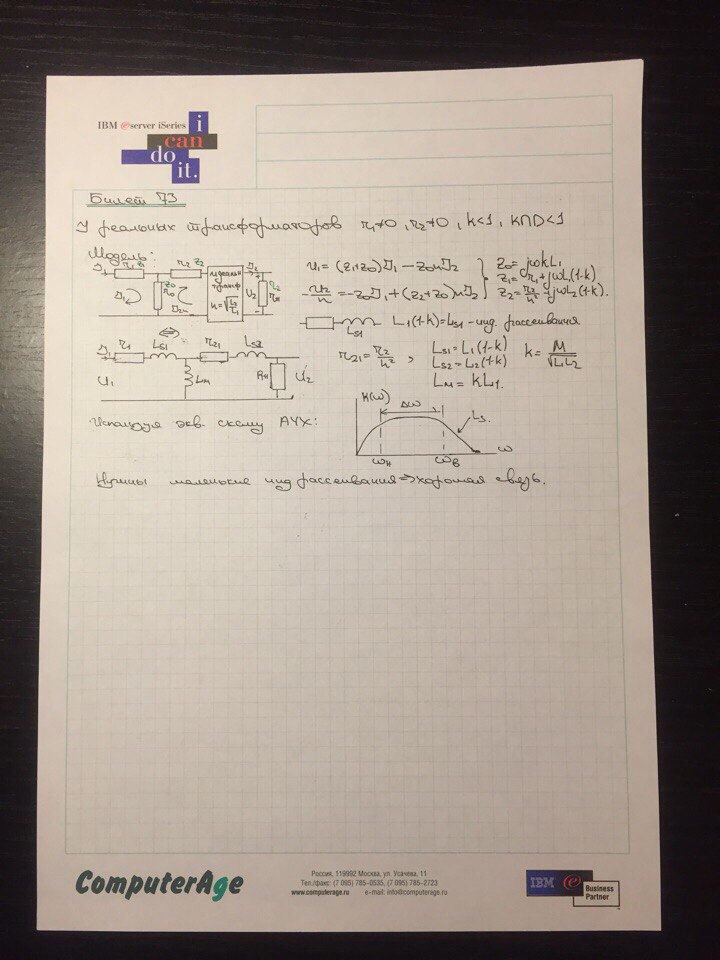 IBM eserver iSeries
i
can
do
it.
Билет 73
У реальных трансформаторов r₁≠0, r₂≠0, k<1, КПД<1
Модель:
r₁ z₁ r₂ z₂
z₀
идеальн трансф
n=√(L₂/L₁)
U₂
U₁ = (z₁+z₀)I₁ − z₀nI₂
−U₂/n = −z₀I₁ + (z₂+z₀)nI₂
z₀ = jωkL₁
z₁ = r₁ + jωL₁(1-k)
z₂ = r₂/n² + jωL₂(1-k).
L_S1
L₁(1-k) = L_S1 - инд. рассеивания
r₁ L_S1 r₂₁ L_S2
U₁ L_M R_H U'₂
r₂₁ = r₂/n² ,
L_S1 = L₁(1-k)
L_S2 = L₂(1-k)
L_M = kL₁.
k = M/√(L₁L₂)
Используя экв. схему АЧХ:
K(ω) Δω L_S.
ω_H ω_B ω
Нужны маленькие инд рассеивания ⇒ хорошая связь.
ComputerAge
Россия, 119992 Москва, ул. Усачева, 11
Тел./факс: (7 095) 785-0535, (7 095) 785-2723
www.computerage.ru e-mail: info@computerage.ru
IBM e Business Partner